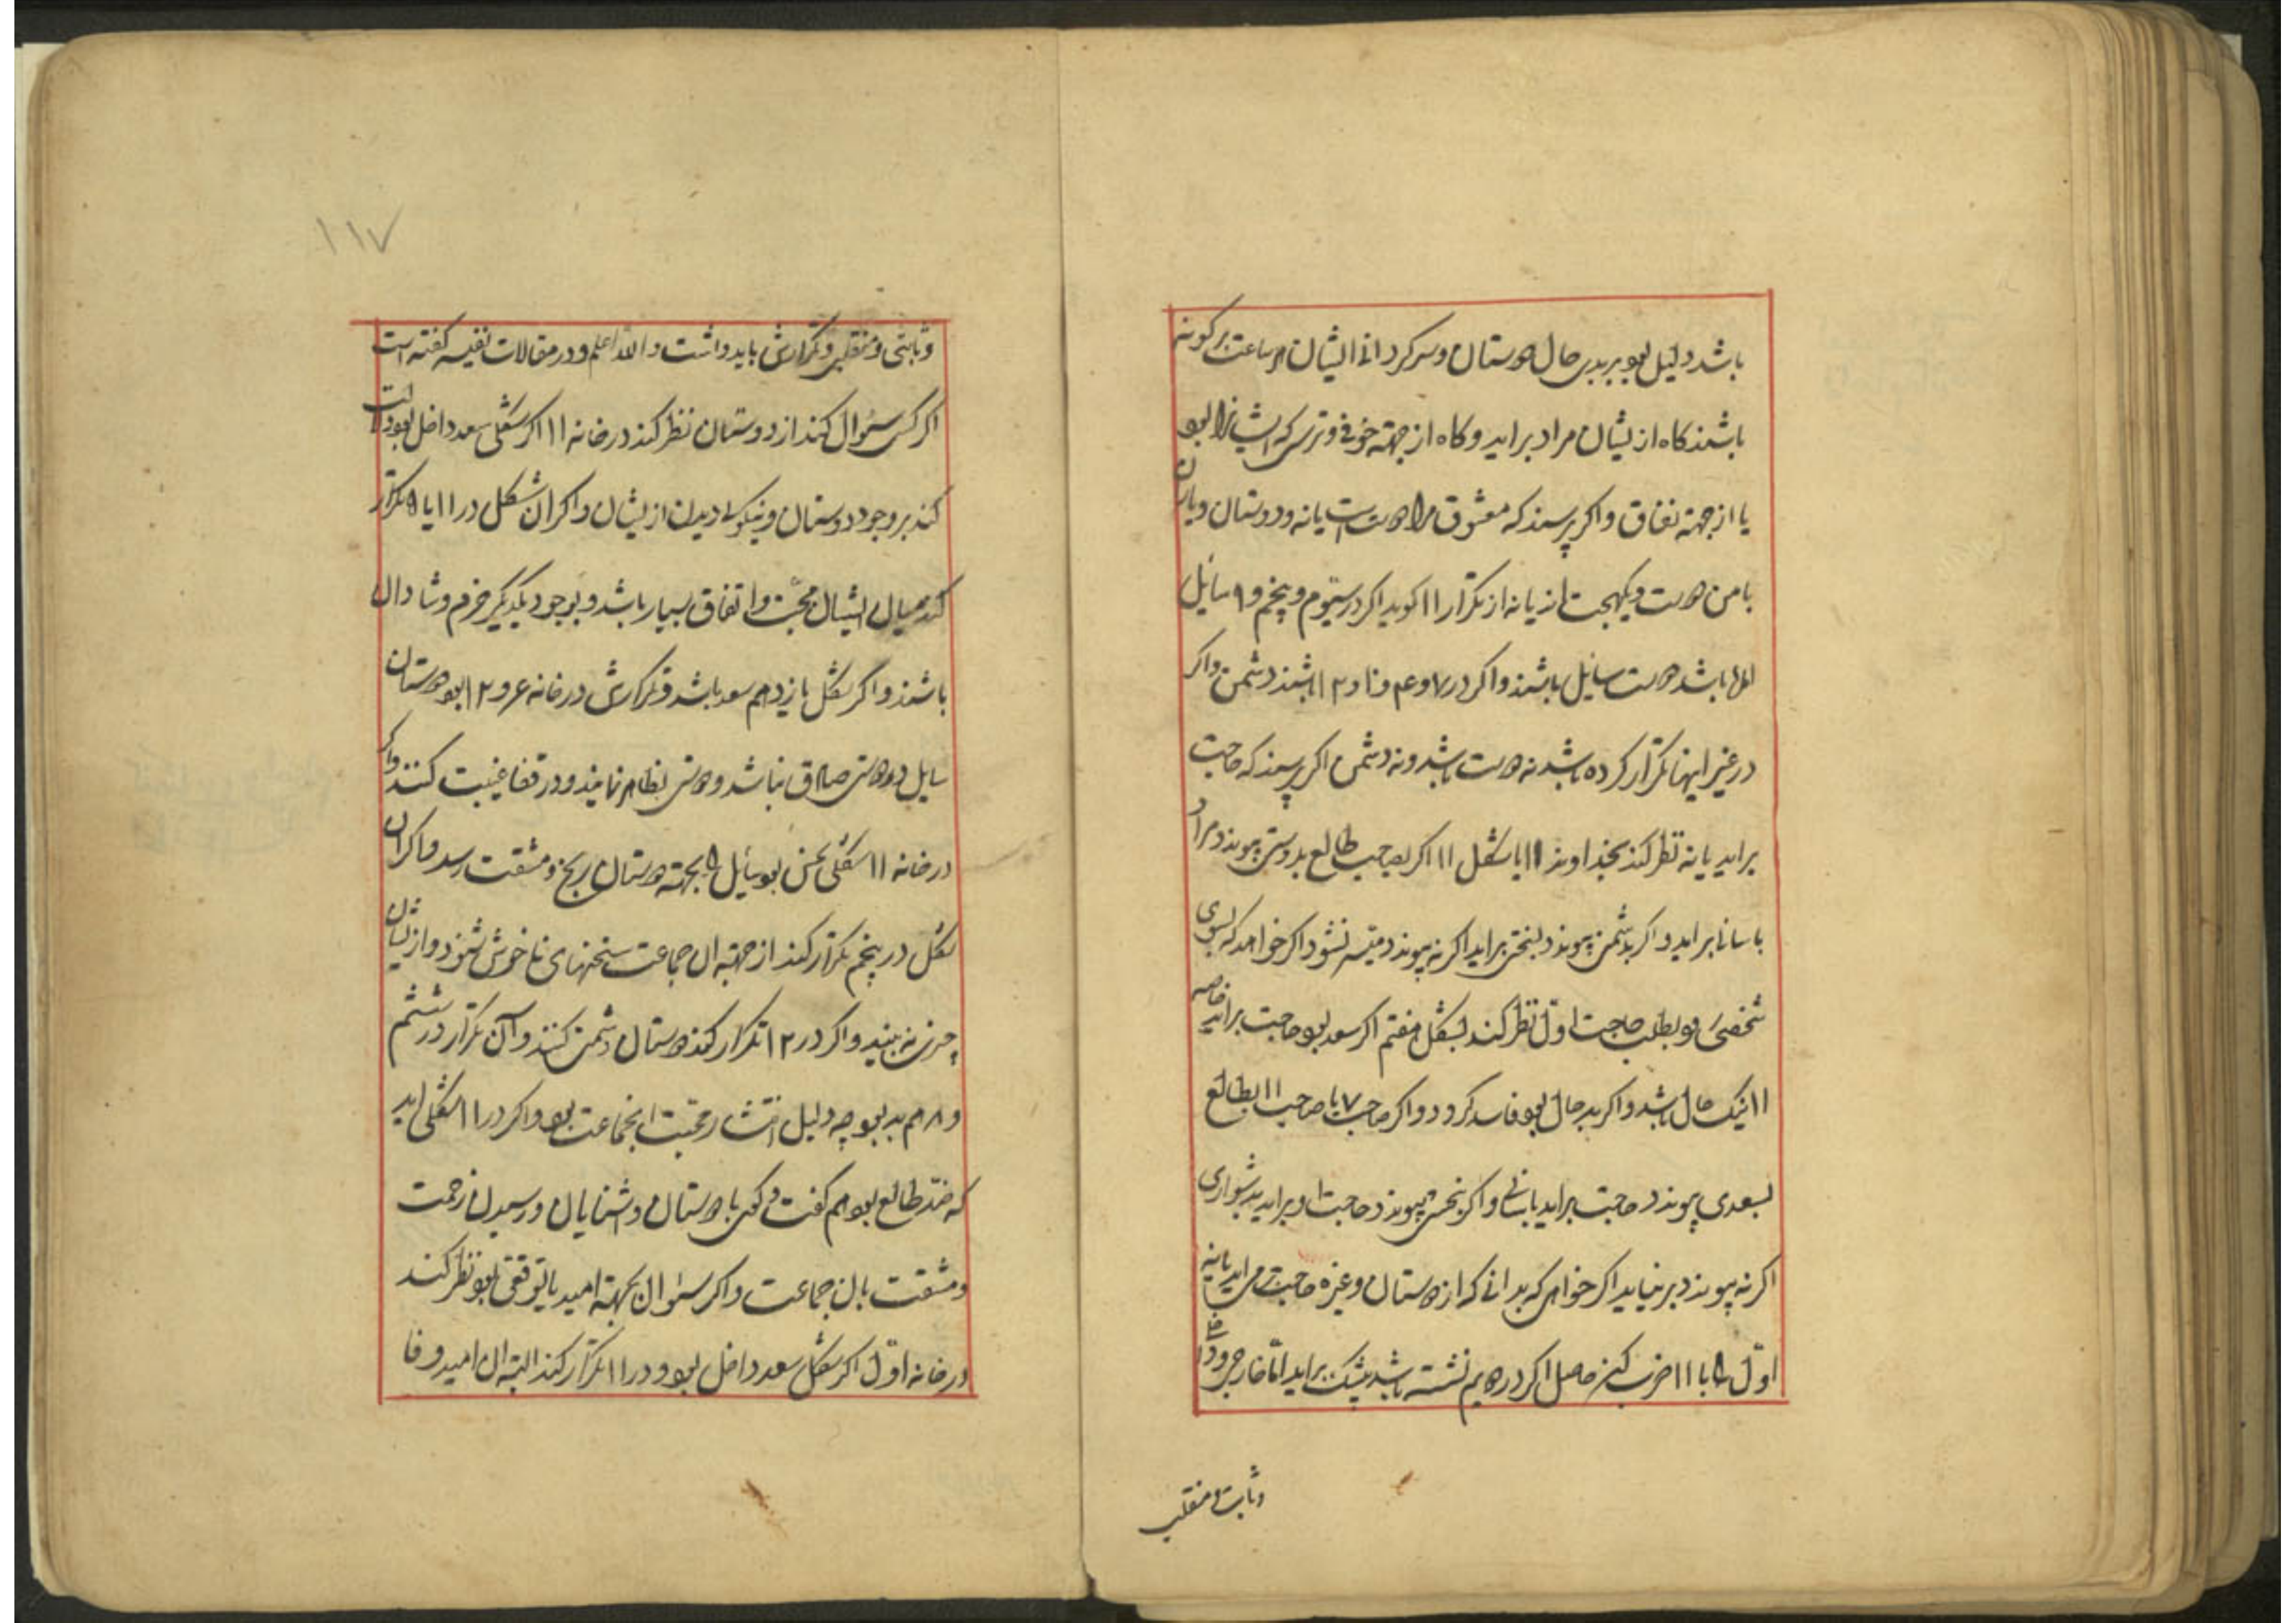 باشد دلیل بود بر بدی حال دوستان و سرکردانی ایشان هر ساعت بر کونه
باشند کاه از یشان مراد براید و کاه از جهة خوفی و ترسی که ایشانرا بود
یا از جهة نفاق و اکر پرسند که معشوق مرا دوست است یا نه و دوستان و یاران
با من دوست و یکجهت اند یا نه از تکرار ۱۱ کوید اکر در سیّوم و پنجم و ۹ سائل
باشد دوست سایل باشند و اکر در ۷ و ۴ و ۱۲ باشند دشمن و اکر
در غیر اینها تکرار کرده باشد نه دوست باشد و نه دشمن اکر پرسند که حاجت
براید یا نه نظر کند بخداوند ۱۱ یا شکل ۱۱ اکر بصاحب طالع بدوستی پیوندد مراد
باسانی براید و اکر بدشمنی پیوندد بسختی براید اکر نه پیوندد میسر نشود اکر خواهد که بسوی
شخصی رود بطلب حاجت اول نظر کند بشکل هفتم اکر سعد بود حاجت براید خاصه
۱۱ نیک حال باشد و اکر بد حال بود فاسد کردد و اکر صاحب ۷ با صاحب ۱۱ بطالع
بسعدی پیوندد حاجت براید باسانی و اکر بنحسی پیوندد حاجت او براید بدشواری
اکر نه پیوندد بر نیاید اکر خواهی که بدانی که از دوستان و غیره حاجت می براید یا نه
اول ۸ با ۱۱ ضرب کن حاصل اکر در دهم نشسته باشد بیشک براید امّا خارجی و داخلی
و ثابت و منقلب
۱۱۷
و ثابتی و منقلبی و تکرارش باید داشت و الله اعلم و در مقالات نفیسه کفته است
اکر کسی سئوال کند از دوستان نظر کند در خانه ۱۱ اکر شکلی سعد داخل بود دلالت
کند بر وجود دوستان و نیکوئی دیدن از یشان و اکر ان شکل در ۱۱ یا ۵ تکرار
کند میان ایشان محبّت و اتفاق بسیار باشد و بوجود یکدیکر خرم و شادان
باشند و اکر شکل یازدهم سعد باشد و تکرارش در خانه ۶ و ۱۲ بود دوستان
سایل در دوستی صادق نباشد و دوستی بظاهر نمایند و در قفا غیبت کنند و اکر
در خانه ۱۱ شکلی نحس بود سائل را بجهة دوستان رنج و مشقت رسد و اکر ان
شکل در پنجم تکرار کند از جهة ان جماعت سخنهای ناخوش شنود و از یشان
چیزی نه بیند و اکر در ۱۲ تکرار کند دوستان دشمنی کنند و آن تکرار در ششم
و ۸ هم بد بود چه دلیل انتشار محبت انجماعت بود و اکر در ۱۱ شکلی اید
که ضد طالع بود هم کفت و کوی با دوستان و اشنایان و رسیدن زحمت
و مشقت بان جماعت و اکر سئوال بجهة امید یا توقعی بود نظر کند
در خانه اوّل اکر شکل سعد داخل بود و در ۱۱ تکرار کند البته ان امید وفا